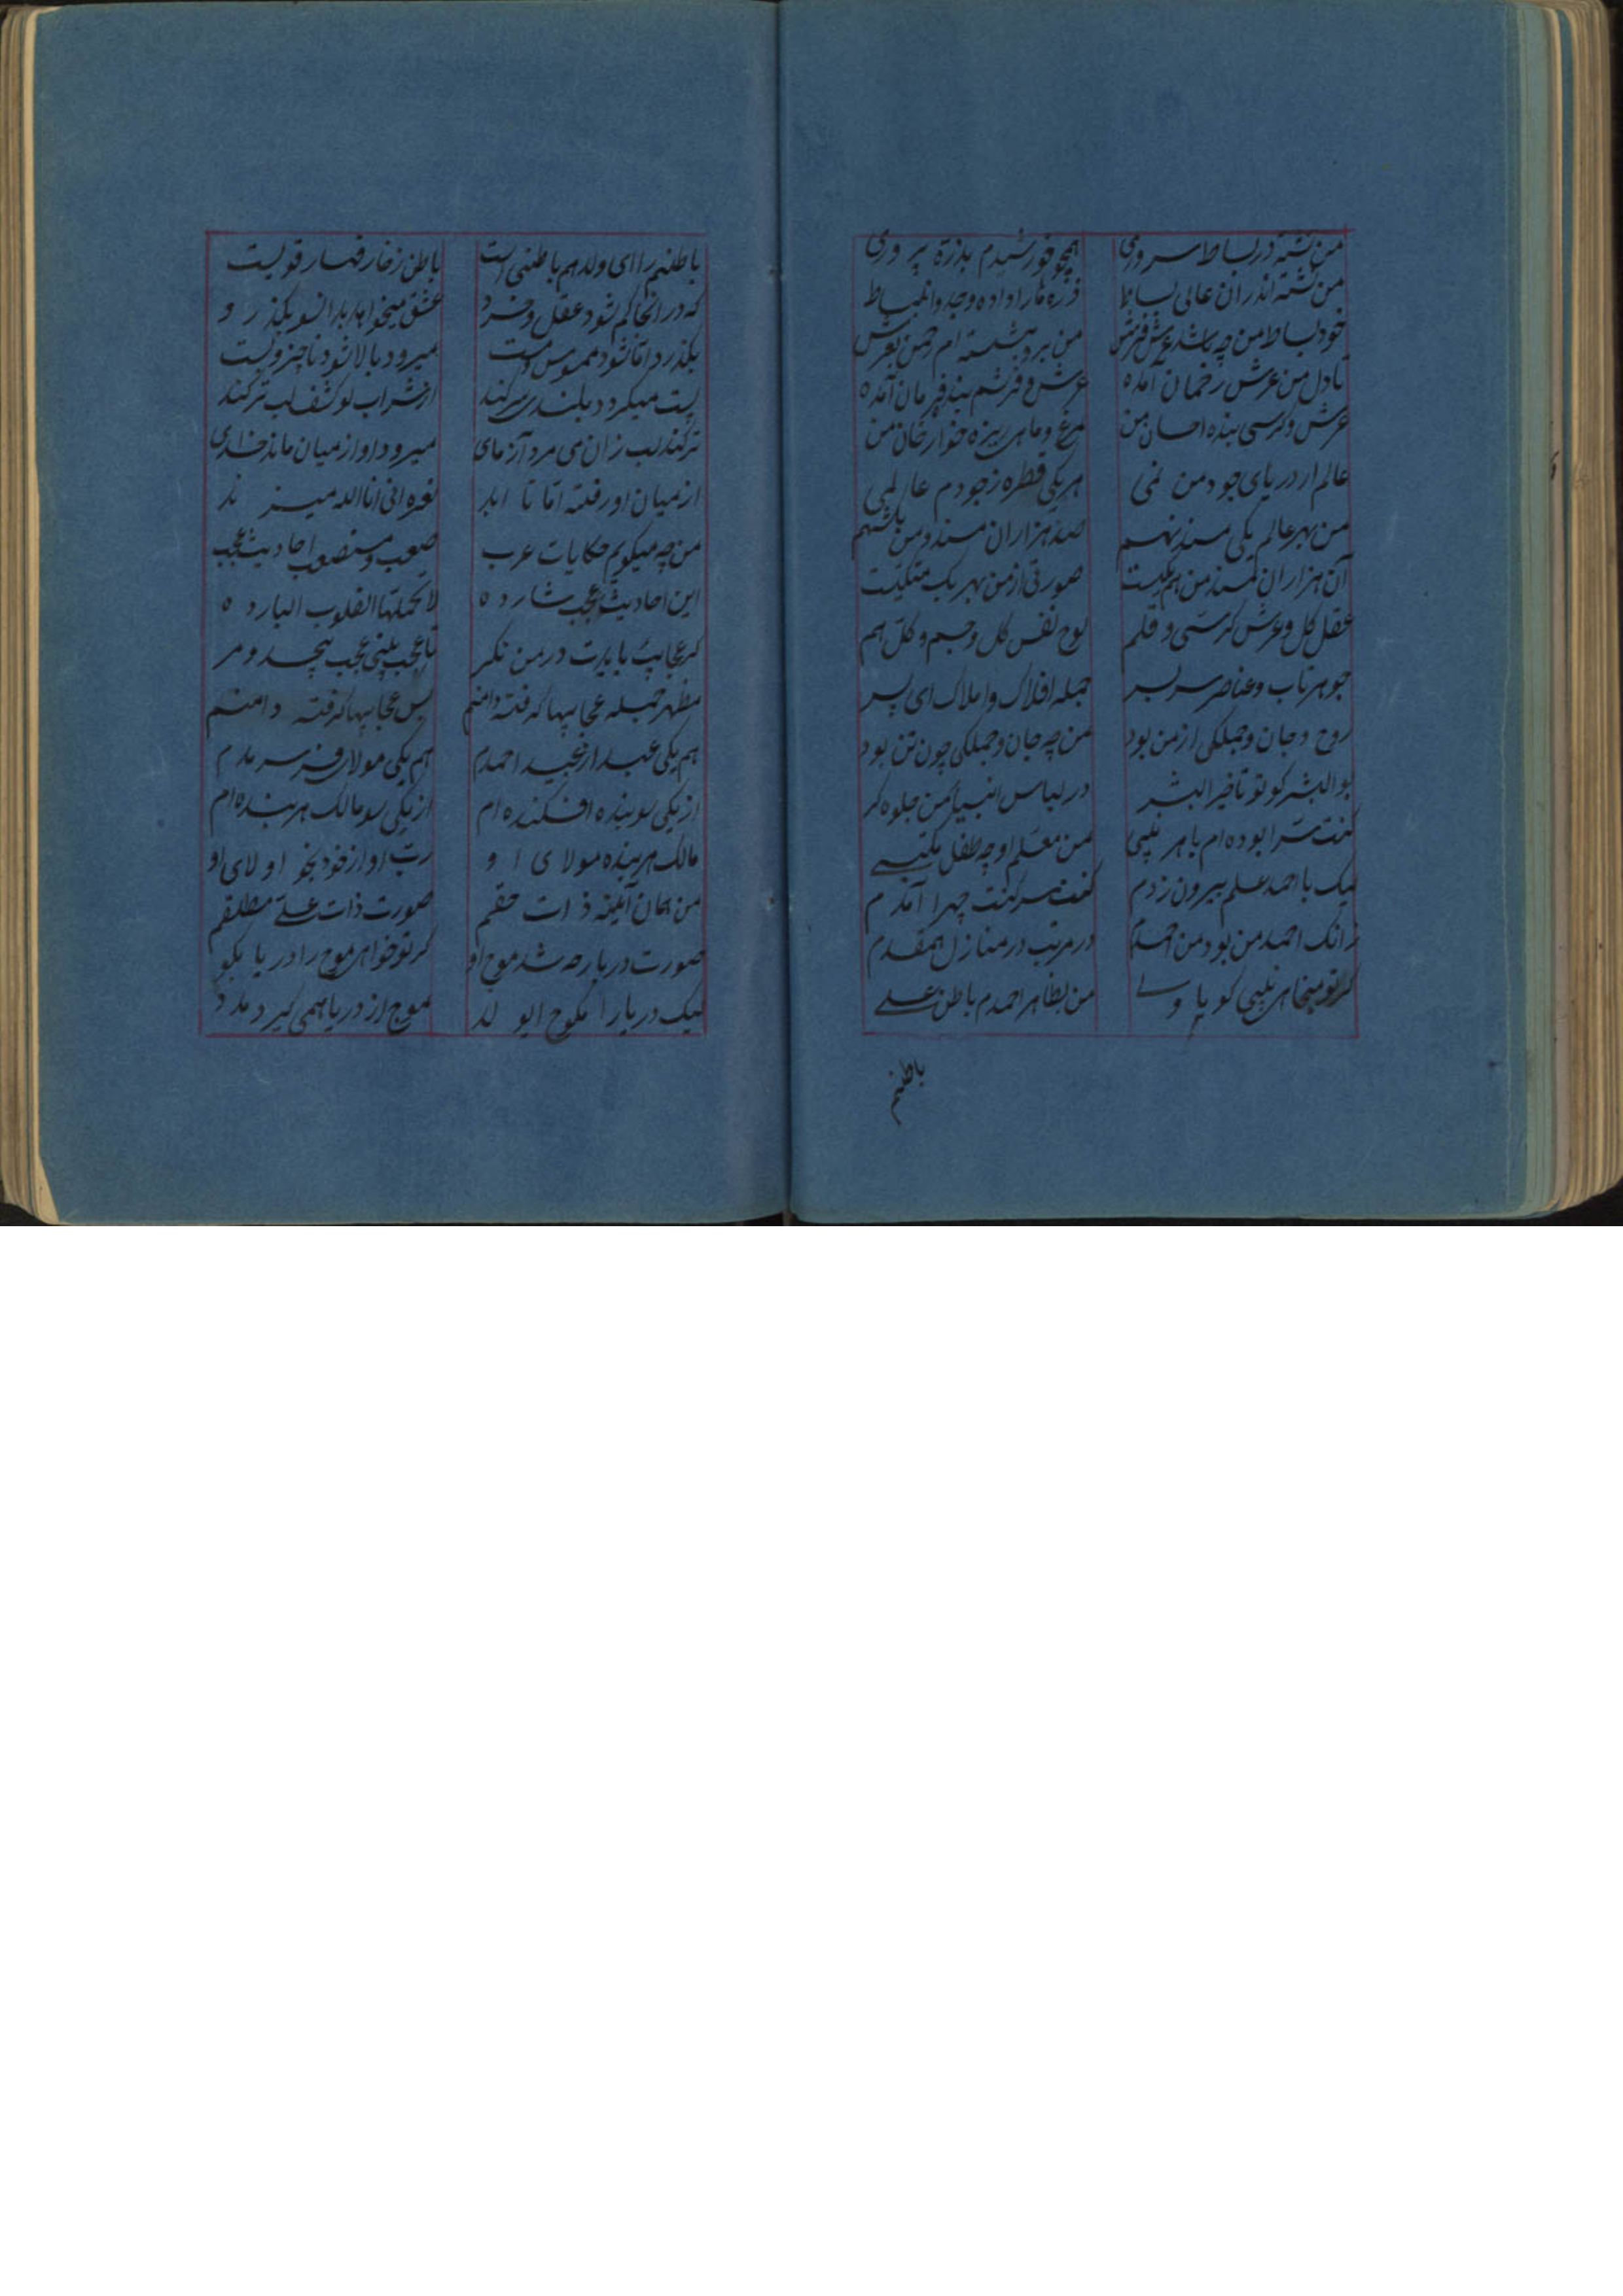 من نشسته در بساط سروری
همچو خورشیدم بذرة پروری
من نشسته اندران عالی بساط
ذره ها را داده وجد وانبساط
خود بساط من چه باشد عرش فرش
من برو بنشسته ام رحمن بعرش
تا دل من عرش رحمان آمده
عرش و فرشم بنده فرمان آمده
عرش و کرسی بنده احسان من
مرغ و ماهی ریزه خوار خان من
عالم از دریای جود من نمی
هر یکی قطره ز جودم عالمی
من بهر عالم یکی مسند نهم
صد هزاران مسند و من یکشهم
آن هزاران مسند من هم یکیست
صورتی از من بهر یک متکیست
عقل کل و عرش کرسی و قلم
لوح نفس کل و جسم و کل هم
جوهر تاب و عناصر سربسر
جمله افلاک و املاک ای پسر
روح و جان و جملکی از من بود
من چه جان و جملکی چون تن بود
بوالبشر کو تو تا خیر البشر
در لباس انبیا من جلوه کر
کنت سرا بوده ام با هر نبیی
من معلم او چه طفل مکتبی
لیک با احمد علم بیرون زدم
کفت سر کنت جهرا آمدم
زانک احمد من بود من احمدم
در مرتب در منازل همقدم
کر تو میخواهی نبیی کو یا ولی
من بظاهر احمدم باطن علی
باطنم
باطنم را ای ولد هم باطنی است
باطن زخار قهار قویست
که در انجا کم شود عقل و خرد
عشق میخواهد بدانسو بکذرد
بکذرد آنا شود ممسوس و مست
میرود بالا شود ناچیز و پست
پست میکردد بلندی سر کند
از شراب لو کشف لب تر کند
تر کند لب زان می مرد آزمای
میرود او از میان ماند خدای
از میان او رفته اما تا ابد
نعره انی انا الله میزند
من چه میکویم حکایات عرب
صعب و مستصعب احادیث عجب
این احادیث عجب شارده
لا تحملها القلوب البارده
کر عجایب بایدت در من نکر
تا عجب بینی عجب بیحد و مر
مظهر جمله عجایبها کرفته دامنم
بس عجایبها کرفته دامنم
هم یکی عبد از عبید احمدم
هم یکی مولای فرد سرمدم
از یکی سو بنده افکنده ام
از یکی سو مالک هر بنده ام
مالک هر بنده مولای او
رب او از خود بخود اولای او
من همان آیینه ذات حقم
صورت ذات علی مطلقم
صورت دریا چه شد موج او
کر تو خواهی موج را دریا بکو
لیک دریا را مکو موج ای ولد
موج از دریا همی کیرد مدد